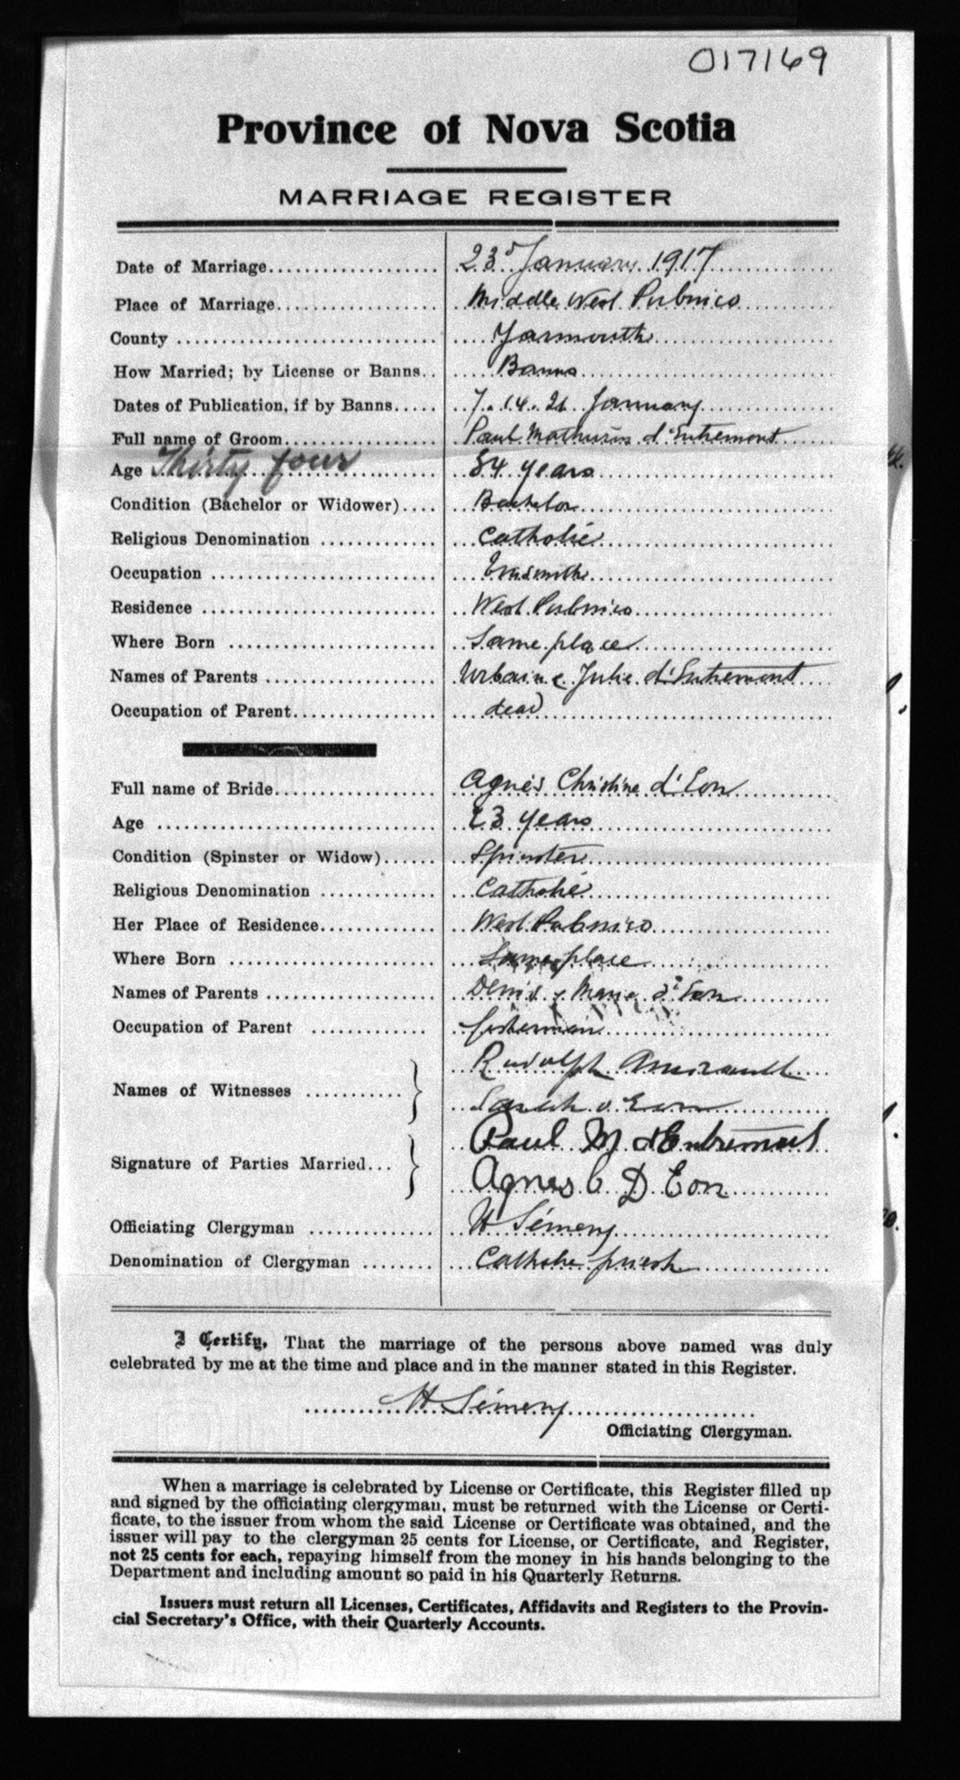 017169
Province of Nova Scotia
MARRIAGE REGISTER
Date of Marriage................... 23d January 1917
Place of Marriage................... Middle West Pubnico
County ........................... Yarmouth
How Married; by License or Banns.. Banns
Dates of Publication, if by Banns..... 7. 14. 21 January
Full name of Groom................ Paul Mathurin d'Entremont
Age Thirty four 34 years
Condition (Bachelor or Widower).... Bachelor
Religious Denomination ............ Catholic
Occupation .......................
Residence ........................ West Pubnico
Where Born ..................... Same place
Names of Parents ................. Urbain e Julie d'Entremont
Occupation of Parent............... dead
Full name of Bride................. Agnès Christine d'Eon
Age ............................. 23 years
Condition (Spinster or Widow)...... Spinster
Religious Denomination ............ Catholic
Her Place of Residence............. West Pubnico
Where Born ..................... Same place
Names of Parents ................. Denis & Marie d'Eon
Occupation of Parent ............. fisherman
Names of Witnesses ........... } Rudolph Amirault
Sarah d'Eon
Signature of Parties Married... } Paul M d'Entremont
Agnes C D Eon
Officiating Clergyman ............. H Sémery
Denomination of Clergyman ........ Catholic priest
I Certify, That the marriage of the persons above named was duly
celebrated by me at the time and place and in the manner stated in this Register.
H Sémery
Officiating Clergyman.
When a marriage is celebrated by License or Certificate, this Register filled up
and signed by the officiating clergyman, must be returned with the License or Certi-
ficate, to the issuer from whom the said License or Certificate was obtained, and the
issuer will pay to the clergyman 25 cents for License, or Certificate, and Register,
not 25 cents for each, repaying himself from the money in his hands belonging to the
Department and including amount so paid in his Quarterly Returns.
Issuers must return all Licenses, Certificates, Affidavits and Registers to the Provin-
cial Secretary's Office, with their Quarterly Accounts.